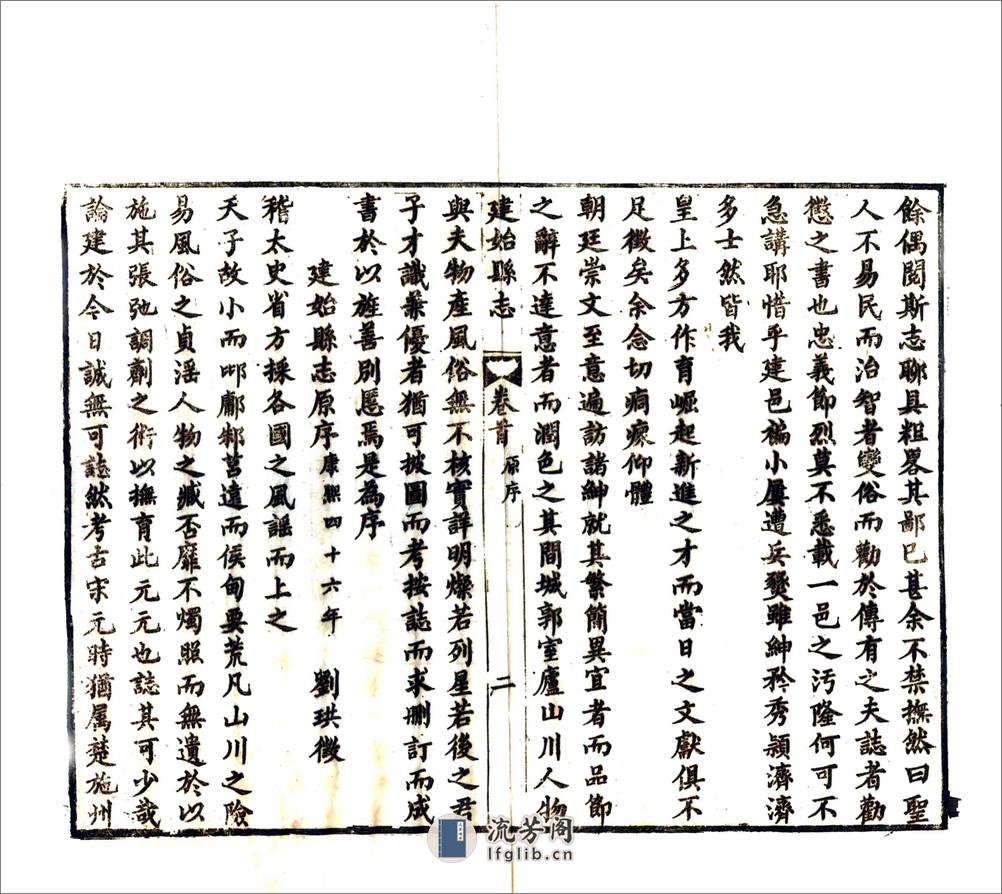 餘偶閱斯志聊具粗畧其鄙已甚余不禁撫然曰聖
人不易民而治智者變俗而勸於傳有之夫誌者勸
懲之書也忠義節烈莫不悉載一邑之污隆何可不
急講耶惜乎建邑褊小屢遭兵燹雖紳矜秀頴濟濟
多士然皆我
皇上多方作育崛起新進之才而當日之文獻俱不
足徵矣余念切痌瘝仰體
朝廷崇文至意遍訪諸紳就其繁簡異宜者而品節
之辭不達意者而潤色之其間城郭室廬山川人物
建始縣志 卷首 原序 二
與夫物產風俗無不核實詳明燦若列星若後之君
子才識兼優者猶可披圖而考按誌而求刪訂而成
書於以旌善別慝焉是為序
建始縣志原序 康熙四十六年 劉珙徵
稽太史省方採各國之風謡而上之
天子故小而邶鄘邾莒遠而侯甸要荒凡山川之險
易風俗之貞淫人物之臧否靡不燭照而無遺於以
施其張弛調劑之術以撫育此元元也誌其可少哉
論建於今日誠無可誌然考古宋元時猶属楚施州
流芳阁
lfglib.cn